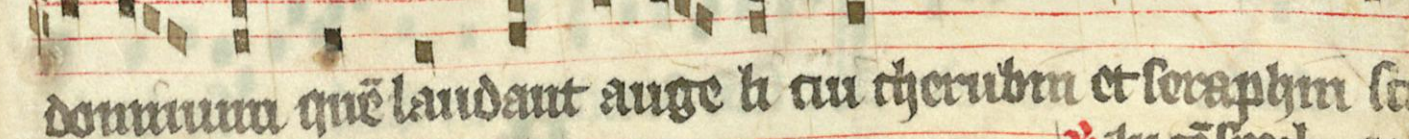 dominum quē laudant ange li cui cherubin et seraphin